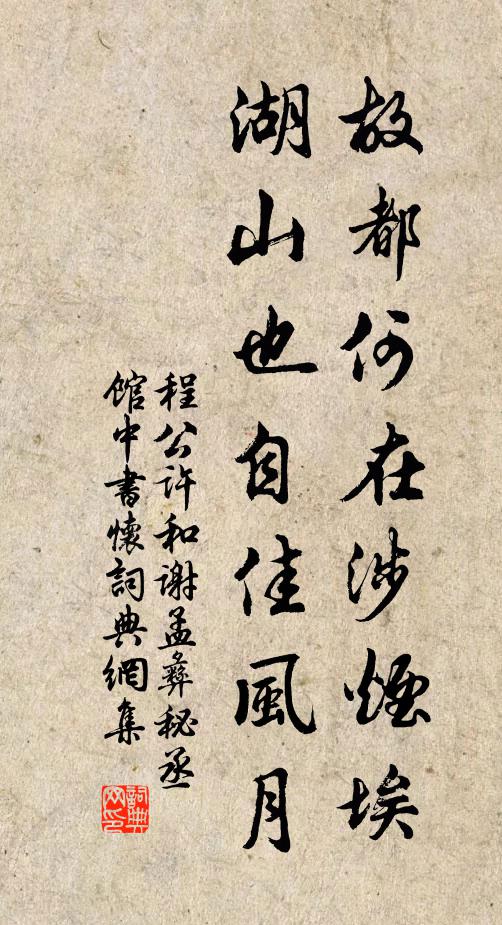 故都何在涉煙埃
湖山也自佳風月
程公许和谢孟彝秘丞
館中書懷詞典網集
詞典网印